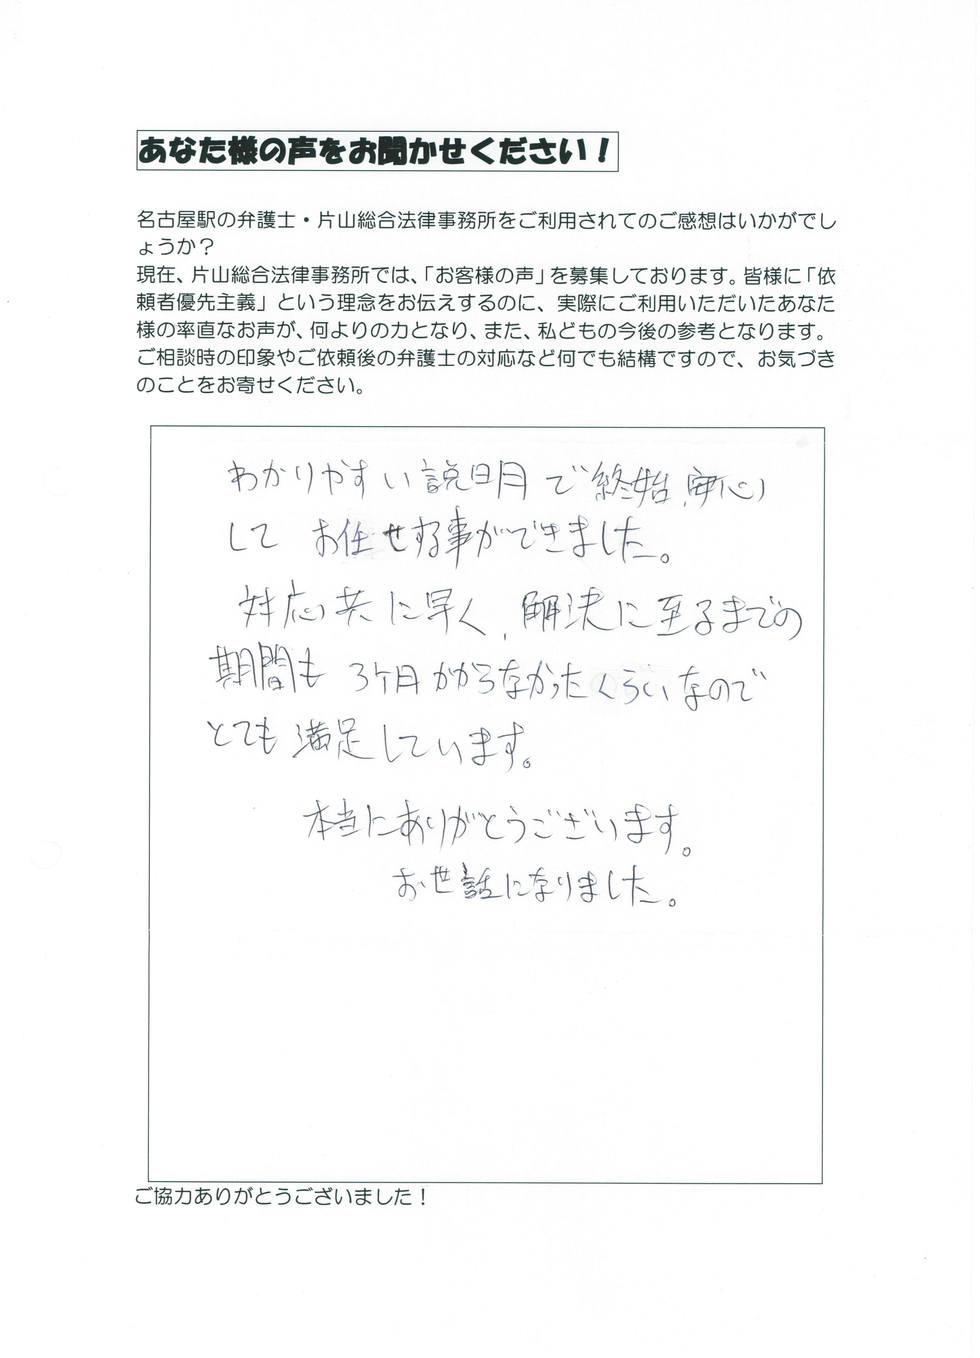 あなた様の声をお聞かせください！
名古屋駅の弁護士・片山総合法律事務所をご利用されてのご感想はいかがでし
ょうか？
現在、片山総合法律事務所では、「お客様の声」を募集しております。皆様に「依
頼者優先主義」という理念をお伝えするのに、実際にご利用いただいたあなた
様の率直なお声が、何よりの力となり、また、私どもの今後の参考となります。
ご相談時の印象やご依頼後の弁護士の対応など何でも結構ですので、お気づき
のことをお寄せください。
わかりやすい説明で終始、安心
して お任せする事ができました。
対応共に早く、解決に至るまでの
期間も 3ヶ月かからなかったくらいなので
とても満足しています。
本当にありがとうございます。
お世話になりました。
ご協力ありがとうございました！